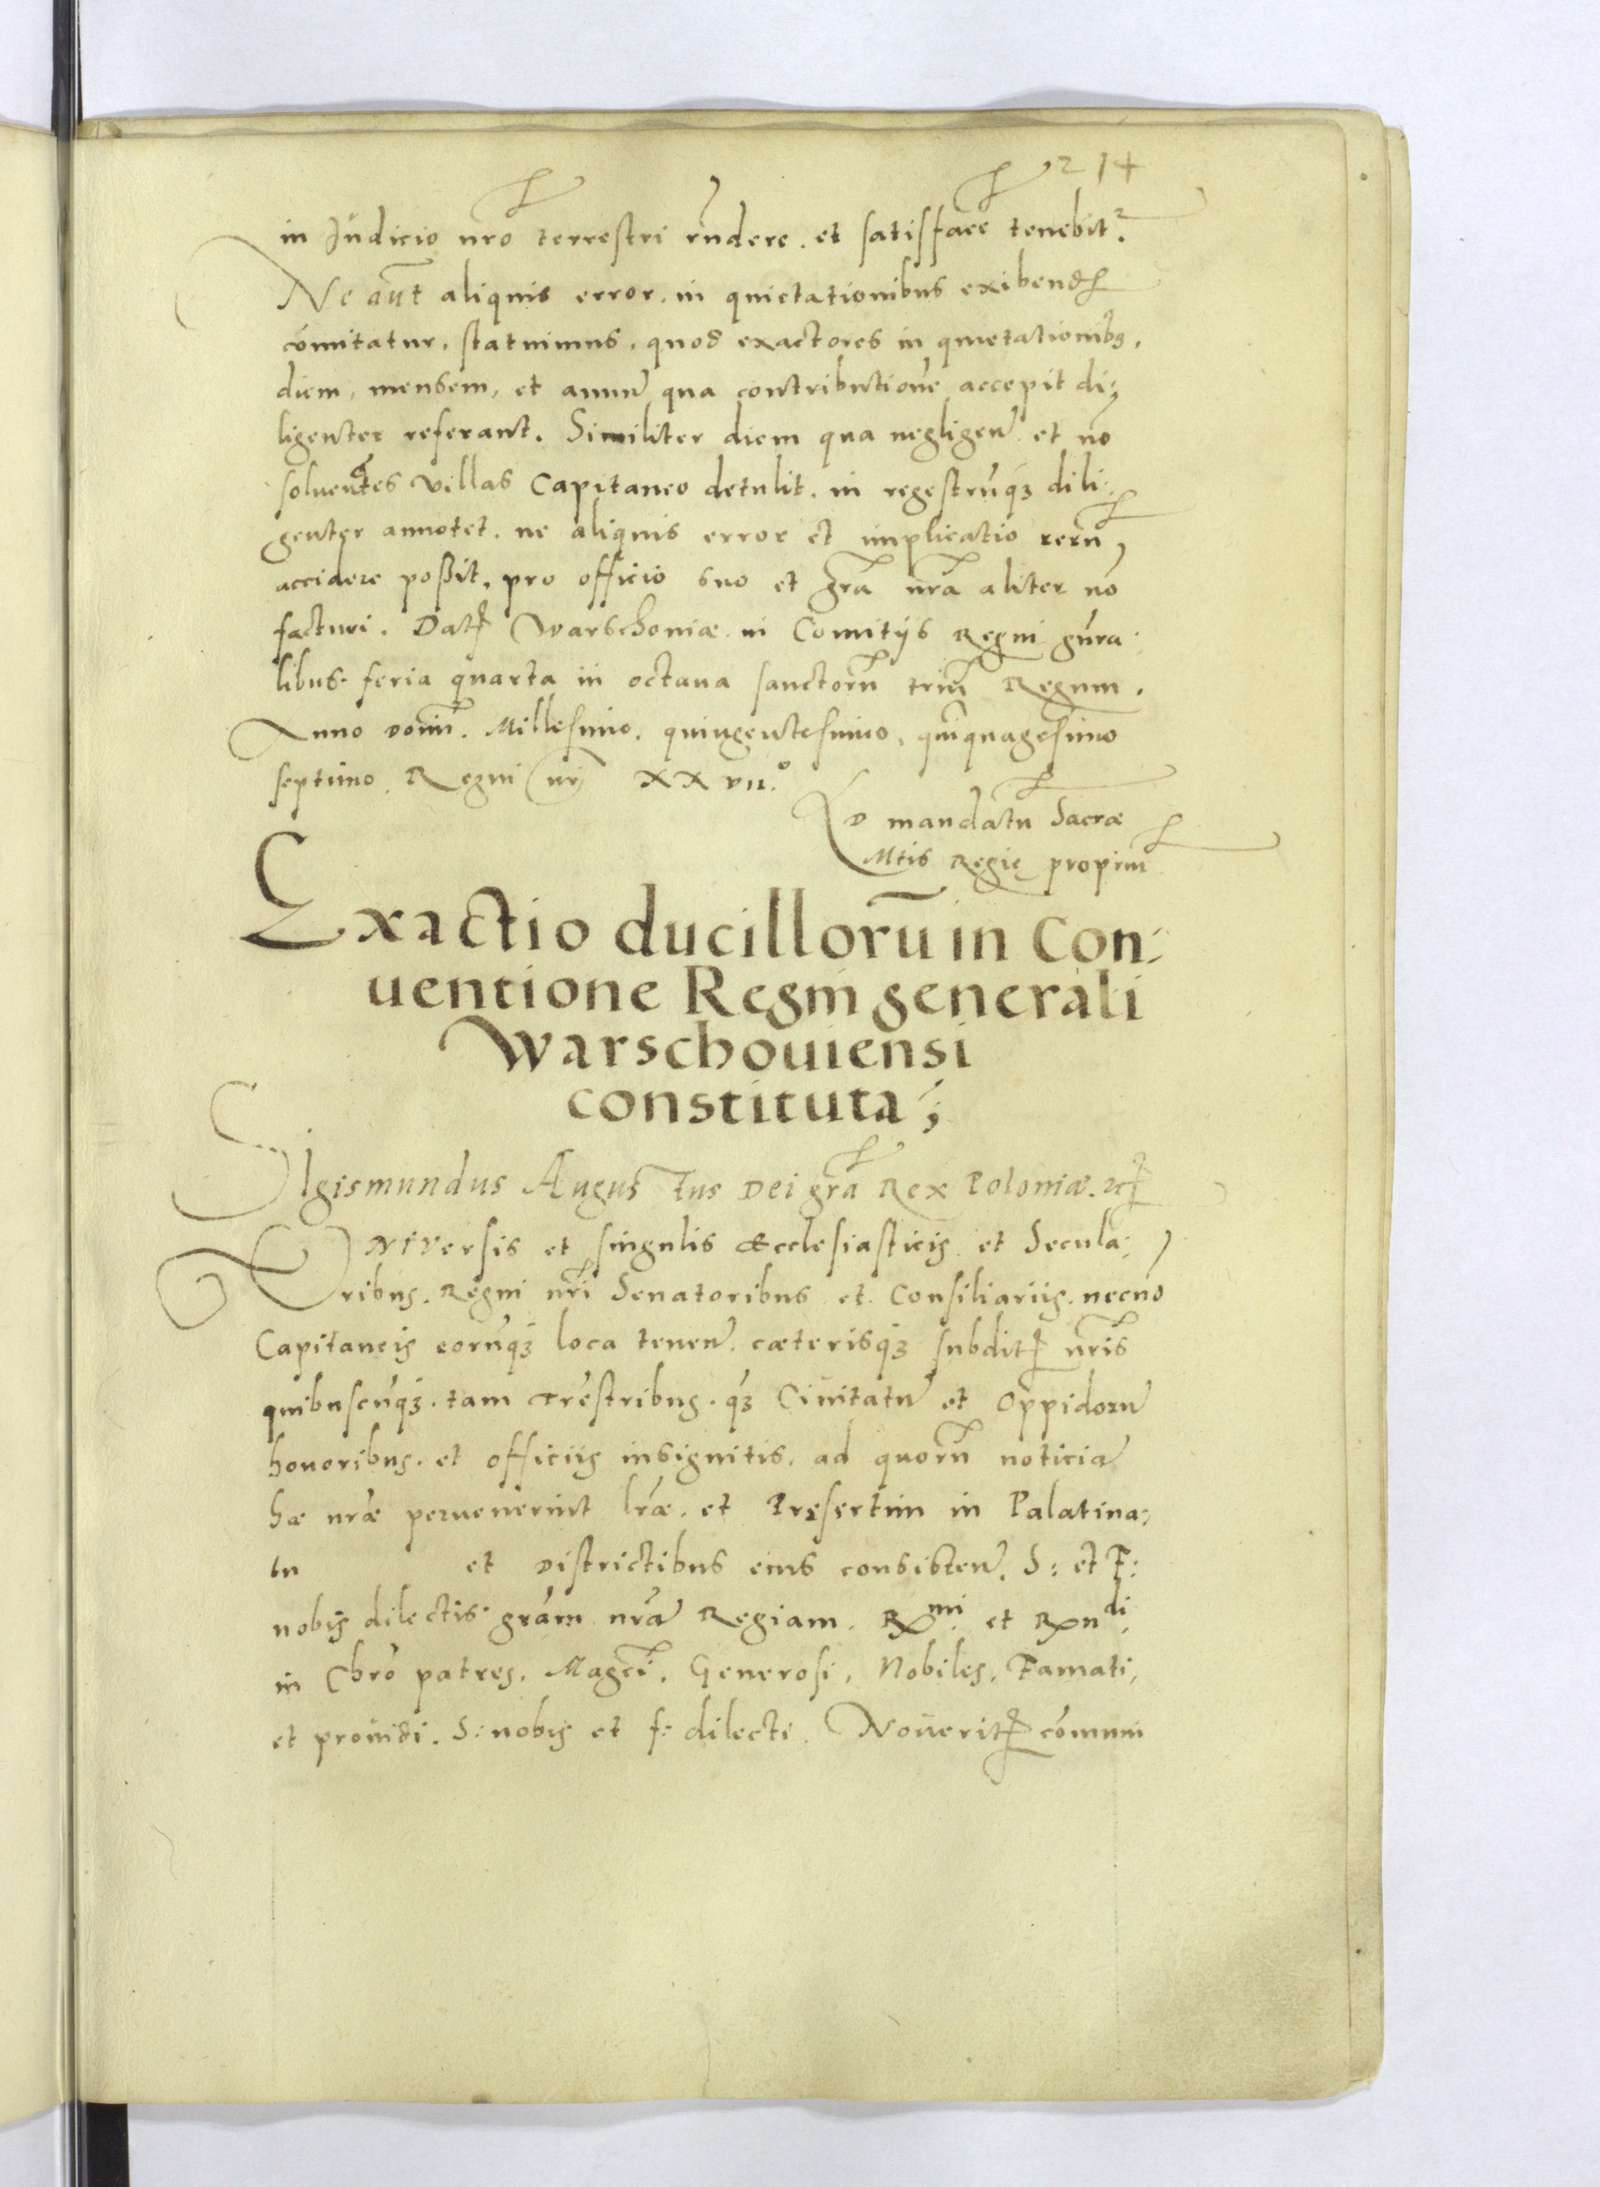 214
in Iudicio nr̃o terrestri rñdere. et satisfacẽ tenebit².
Ne aũt aliquis error. in quietationibus exibend
cõmitatur, statuimus, quod exactores in quietationibꝫ,
diem, mensem, et annũ qua contributionẽ accepit di⸗
ligenter referant. Similiter diem qua negligeñ et nõ
soluentes villas Capitaneo detulit. in regestrũqꝫ dili⸗
genter annotet. ne aliquis error et implicatio rerũ
accidere poßit, pro officio suo et gr̃a nr̃a aliter nõ
facturi. Datꝭ Warschoniæ in Comitijs Regni gñra⸗
libus feria quarta in octaua sanctorũ triũ Regum.
Anno domĩ. Millesimo, quingentesimo, quĩquagesimo
septimo, Regni nrĩ XXVII.°
Ad mandatũ Sacræ
Mtis Regię propriũ
Exactio ducillorũ in Con⸗
uentione Regni generali
Warschouiensi
constituta;
Sigismundus Augustus Dei gr̃a Rex Poloniæ. ⁊cꝭ
Vniversis et singulis Ecclesiasticis et Secula⸗
ribus, Regni nrĩ Senatoribus et Consiliariis. necnõ
Capitaneis eorũqꝫ loca teneñ. cæterisqꝫ subditꝭ nrĩs
quibuscũqꝫ. tam Trẽstribus. qꝫ Ciuitatũ et Oppidorũ
honoribus. et officiis insignitis. ad quorũ noticiã
hæ nrãe peruenerint lrãe. et Presertim in Palatina⸗
tu et Districtibus eius consisteñ. S: et F:
nobis dilectis grãm nrã Regiam. Rmi et Rndi
in Chrõ patres. Magcĩ. Generosi, Nobiles, Famati,
et prouidi. S: nobis et f: dilecti. Noueritꝭ cõmuni